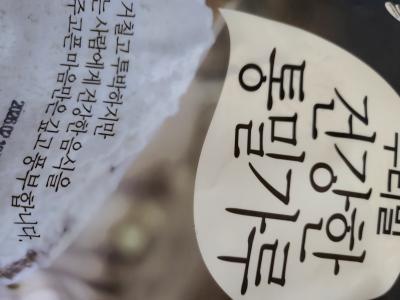 우리밀
건강한
통밀가루
거칠고 투박하지만
는 사람에게 건강한 음식을
주고픈 마음만은 깊고 풍부합니다.